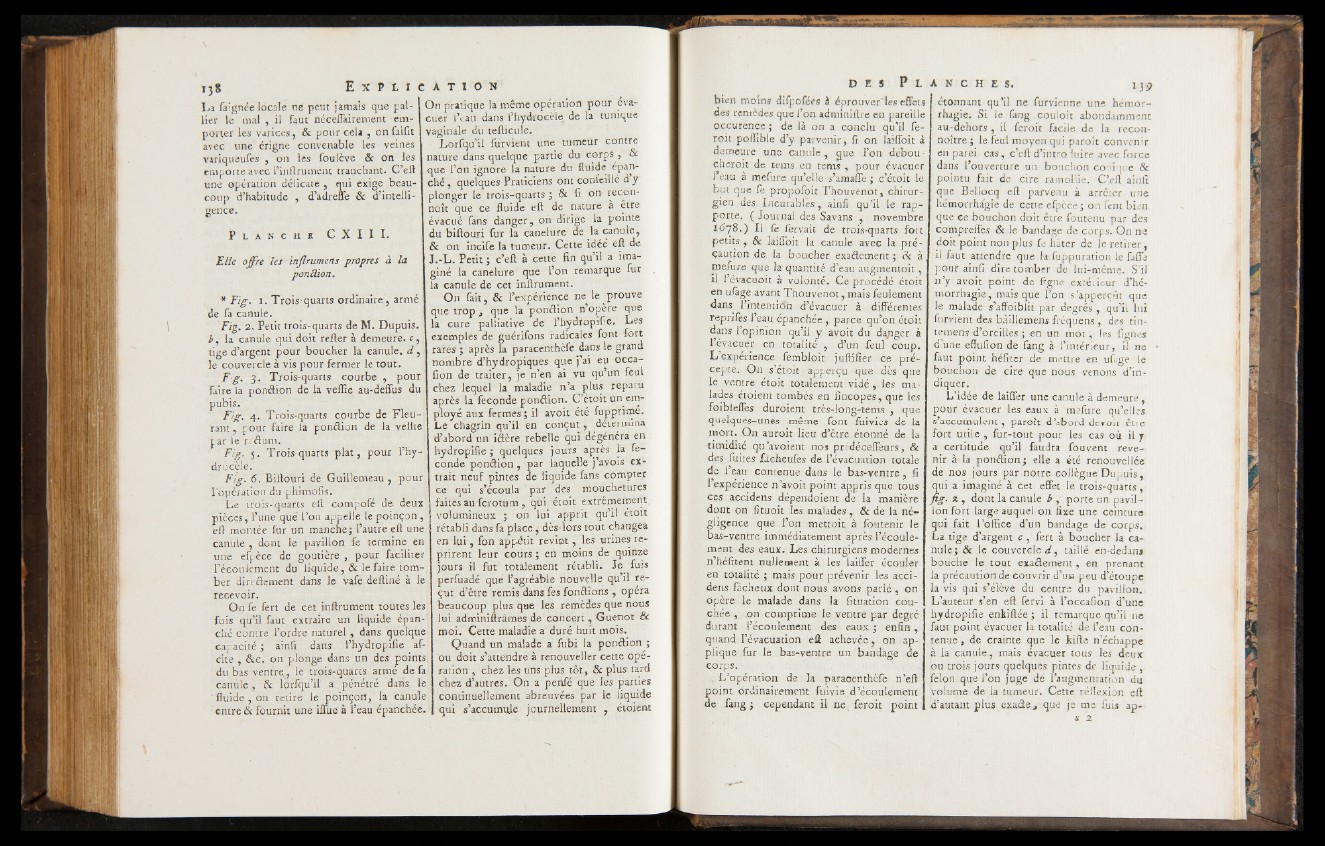 138 EXPLICATION
La ſaignée locale ne peut jamais que pal-
lier le mal , il faut néceſſairement em-
porter les varices, & pour cela , on ſaiſit
avec une érigne convenable les veines
variqueuſes , on les ſoulève & on les
emporte avec l'inſtrument tranchant. C'eſt
une opération délicate , qui exige beau-
coup d'habitude , d'adreſſe & d'intelli-
gence.
PLANCHE CXIII.
Elle offre les inſtrumens propres à la
ponction.
* Fig. 1. Trois-quarts ordinaire, armé
de ſa canule.
Fig. 2. Petit trois-quarts de M. Dupuis.
b, la canule qui doit reſter à demeure. c,
tige d'argent pour boucher la canule. d,
le couvercle à vis pour fermer le tout.
Fig. 3. Trois-quarts courbe , pour
faire la ponction de la veſſie au-deſſus du
pubis.
Fig. 4. Trois-quarts courbe de Fleu-
rant, pour faire la ponction de la veſſie
par le rectum.
Fig. 5. Trois-quarts plat, pour l'hy-
drocèle.
Fig. 6. Biſtouri de Guillemeau , pour
l'opération du phimoſis.
Le trois-quarts eſt compoſé de deux
pièces, l'une que l'on appelle le poinçon,
eſt montée ſur un manche; l'autre eſt une
canule , dont le pavillon ſe termine en
une eſpèce de goutière , pour faciliter
l'écoulement du liquide, & le faire tom-
ber directement dans le vaſe deſtiné à le
recevoir.
On ſe ſert de cet inſtrument toutes les
fois qu'il faut extraire un liquide épan-
ché contre l'ordre naturel , dans quelque
capacité ; ainſi dans l'hydropiſie aſ-
cite , &c. on plonge dans un des points
du bas ventre, le trois-quarts armé de ſa
canule , & lorſqu'il a pénétré dans le
fluide , on retire le poinçon, la canule
entre & fournit une iſſue à l'eau épanchée.
On pratique la même opération pour éva-
cuer l'eau dans l'hydrocèle de la tunique
vaginale du teſticule.
Lorſqu'il ſurvient une tumeur contre
nature dans quelque partie du corps , &
que l'on ignore la nature du fluide épan-
ché, quelques Praticiens ont conſeillé d'y
plonger le trois-quarts ; & ſi on recon-
noît que ce fluide eſt de nature à être
évacué ſans danger, on dirige la pointe
du biſtouri ſur la canelure de la canule,
& on inciſe la tumeur. Cette idée eſt de
J.-L. Petit ; c'eſt à cette fin qu'il a ima-
giné la canelure que l'on remarque ſur
la canule de cet inſtrument.
On ſait, & l'expérience ne le prouve
que trop, que la ponction n'opère que
la cure palliative de l'hydropiſie. Les
exemples de guériſons radicales ſont fort
rares ; après la paracenthèſe dans le grand
nombre d'hydropiques que j'ai eu occa-
ſion de traiter, je n'en ai vu qu'un ſeul
chez lequel la maladie n'a plus reparu
après la ſeconde ponction. C'étoit un em-
ployé aux fermes ; il avoit été ſupprimé.
Le chagrin qu'il en conçut , détermina
d'abord un ictère rebelle qui dégénéra en
hydropiſie ; quelques jours après la ſe-
conde ponction , par laquelle j'avois ex-
trait neuf pintes de liquide ſans compter
ce qui s'écoula par des mouchetures
faites au ſcrotum , qui étoit extrêmement
volumineux ; on lui apprit qu'il étoit
rétabli dans ſa place , dès-lors tout changea
en lui , ſon appétit revint , les urines re-
prirent leur cours ; en moins de quinze
jours il fut totalement rétabli. Je ſuis
perſuadé que l'agréable nouvelle qu'il re-
çut d'être remis dans ſes fonctions , opéra
beaucoup plus que les remèdes que nous
lui adminiſtrâmes de concert, Guenot &
moi. Cette maladie a duré huit mois.
Quand un malade a ſubi la ponction ;
ou doit s'attendre à renouveller cette opé-
ration , chez les uns plus tôt, & plus tard
chez d'autres. On a penſé que les parties
continuellement abreuvées par le liquide
qui s'accumule journellement , étoient
DES PLANCHES. 139
bien moins diſpoſées à éprouver les effets
des remèdes que l'on adminiſtre en pareille
occurence ; de là on a conclu qu'il ſe-
roit poſſible d'y parvenir, ſi on laiſſoit à
demeure une canule, que l'on débou-
cheroit de tems en tems , pour évacuer
l'eau à meſure qu'elle s'amaſſe ; c'étoit le
but que ſe propoſoit Thouvenot, chirur-
gien des Incurables, ainſi qu'il le rap-
porte. ( Journal des Savans , novembre
1678.) Il ſe ſervoit de trois-quarts fort
petits , & laiſſoit la canule avec la pré-
caution de la boucher exactement ; & à
meſure que la quantité d'eau augmentoit,
il l'évacuoit à volonté. Ce procédé étoit
en uſage avant Thouvenot, mais ſeulement
dans l'intention d'évacuer à différentes
repriſes l'eau épanchée , parce qu'on étoit
dans l'opinion qu'il y avoit du danger à
l'évacuer en totalité , d'un ſeul coup.
L'expérience ſembloit juſtifier ce pré-
cepte. On s'étoit apperçu que dès que
le ventre étoit totalement vidé , les ma-
lades étoient tombés en ſincopes, que les
foibleſſes duroient très-long-tems , que
quelques-unes même ſont ſuivies de la
mort. On auroit lieu d'être étonné de la
timidité qu'avoient nos prédéceſſeurs, &
des ſuites fâcheuſes de l'évacuation totale
de l'eau contenue dans le bas-ventre , ſi
l'expérience n'avoit point appris que tous
ces accidens dépendoient de la manière
dont on ſituoit les malades , & de la né-
gligence que l'on mettoit à ſoutenir le
bas-ventre immédiatement après l'écoule-
ment des eaux. Les chirurgiens modernes
n'héſitent nullement à les laiſſer écouler
en totalité ; mais pour prévenir les acci-
dens fâcheux dont nous avons parlé , on
opère le malade dans la ſituation cou-
chée , on comprime le ventre par degré
durant l'écoulement des eaux ; enfin ,
quand l'évacuation eſt achevée, on ap-
plique ſur le bas-ventre un bandage de
corps.
L'opération de la paracenthèſe n'eſt
point ordinairement ſuivie d'écoulement
de ſang ; cependant il ne ſeroit point
étonnant qu'il ne ſurvienne une hémor-
rhagie. Si le ſang couloit abondamment
au-dehors , il ſeroit facile de la recon-
noître ; le ſeul moyen qui paroît convenir
en pareil cas , c'eſt d'introduire avec force
dans l'ouverture un bouchon conique &
pointu fait de cire ramollie. C'eſt ainſi
que Bellocq eſt parvenu à arrêter une
hémorrhagie de cette eſpèce ; on ſent bien
que ce bouchon doit être ſoutenu par des
compreſſes & le bandage de corps. On ne
doit point non plus ſe hâter de le retirer,
il faut attendre que la ſuppuration le faſſe
pour ainſi dire tomber de lui-même. S'il
n'y avoit point de ſigne extérieur d'hé-
morrhagie, mais que l'on s'apperçût que
le malade s'affoiblit par degrés , qu'il lui
ſurvient des bâillemens fréquens , des tin-
temens d'oreilles ; en un mot, les ſignes
d'une effuſion de ſang à l'intérieur, il ne
faut point héſiter de mettre en uſage le
bouchon de cire que nous venons d'in-
diquer.
L'idée de laiſſer une canule à demeure,
pour évacuer les eaux à meſure qu'elles
s'accumulent , paroît d'abord devoir être
fort utile , ſur-tout pour les cas où il y
a certitude qu'il faudra ſouvent reve-
nir à la ponction ; elle a été renouvellée
de nos jours par notre collègue Dupuis,
qui a imaginé à cet effet le trois-quarts ,
fig. 2 , dont la canule b , porte un pavil-
lon fort large auquel on fixe une ceinture
qui fait l'office d'un bandage de corps.
La tige d'argent c , ſert à boucher la ca-
nule ; & le couvercle d , taillé en-dedans
bouche le tout exactement , en prenant
la précaution de couvrir d'un peu d'étoupe
la vis qui s'élève du centre du pavillon.
L'auteur s'en eſt ſervi à l'occaſion d'une
hydropiſie enkiſtée ; il remarque qu'il ne
faut point évacuer la totalité de l'eau con-
tenue , de crainte que le kiſte n'échappe
à la canule, mais évacuer tous les deux
ou trois jours quelques pintes de liquide ,
ſelon que l'on juge de l'augmentation du
volume de la tumeur. Cette réflexion eſt
d'autant plus exacte, que je me ſuis ap-
s 2